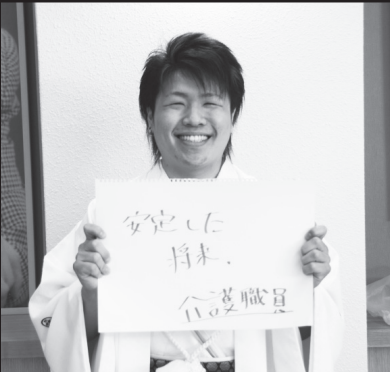 安定した
将来.
介護職員